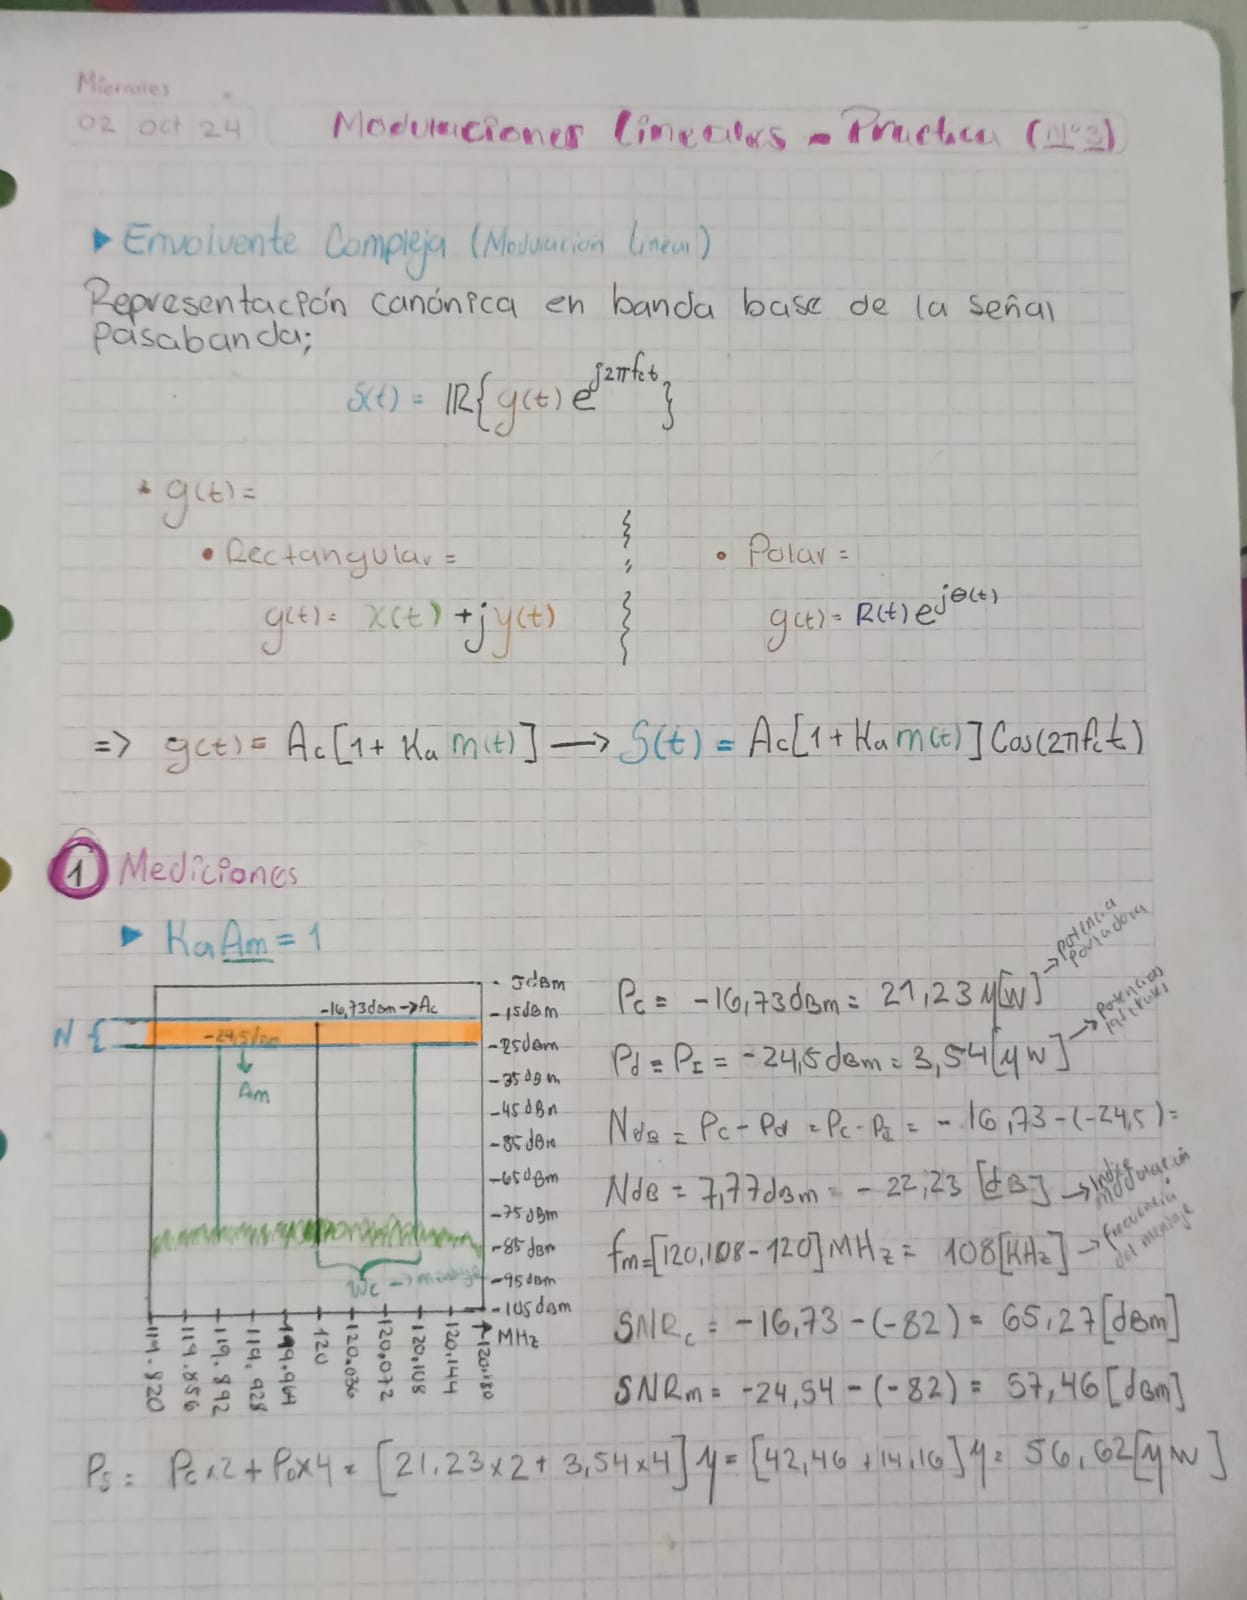 Miercoles
02 Oct 24
Modulaciones Lineales - Practica (N°3)
▶ Envolvente Compleja (Modulacion Lineal)
Representación canónica en banda base de la señal
Pasabanda;
S(t) = IR{g(t) e^j2πfct}
* g(t) =
• Rectangular =
• Polar =
g(t) = x(t) + jy(t)
g(t) = R(t) e^jθ(t)
=> g(t) = Ac[1 + Ka m(t)] → S(t) = Ac[1 + Ka m(t)] Cos(2πfct)
1 Mediciones
▶ KaAm = 1
N {
-16,73dBm → Ac
-24,5dBm
Am
Wc → mensaje
- 5dBm
-15dBm
-25dBm
-35dBm
-45dBm
-85dBm
-65dBm
-75dBm
-85dBm
-95dBm
-105dBm
MHz
119.820
119.856
119.892
119.928
119.964
120
120.036
120.072
120.108
120.144
120.180
Pc = -16,73dBm = 21,23 μ[W] → potencia portadora
Pd = PI = -24,5dBm = 3,54[μW] → potencias laterales
NdB = Pc - Pd = Pc - PI = - 16,73-(-24,5) =
NdB = 7,77dBm = - 22,23 [dB] → Indice modulación
fm = [120,108 - 120] MHz = 108[KHz] → frecuencia del mensaje
SNRc = -16,73 - (-82) = 65,27[dBm]
SNRm = -24,54 - (-82) = 57,46[dBm]
Ps = Pc x2 + PD x4 = [21,23x2 + 3,54x4] μ = [42,46 + 14,16] μ = 56,62[μW]